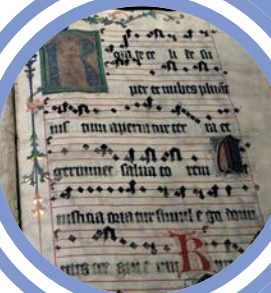 Rorate celi de su
per et nubes pluāt
ius tum aperiatur ter ra et
germinet salua to rem Et
iusticia oria tur simul e go domi
nus